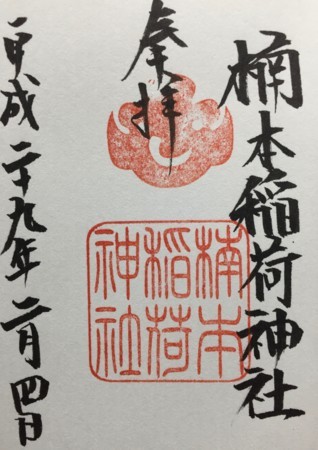 楠本稲荷神社
奉拝
楠本
稲荷
神社
平成二十九年二月四日